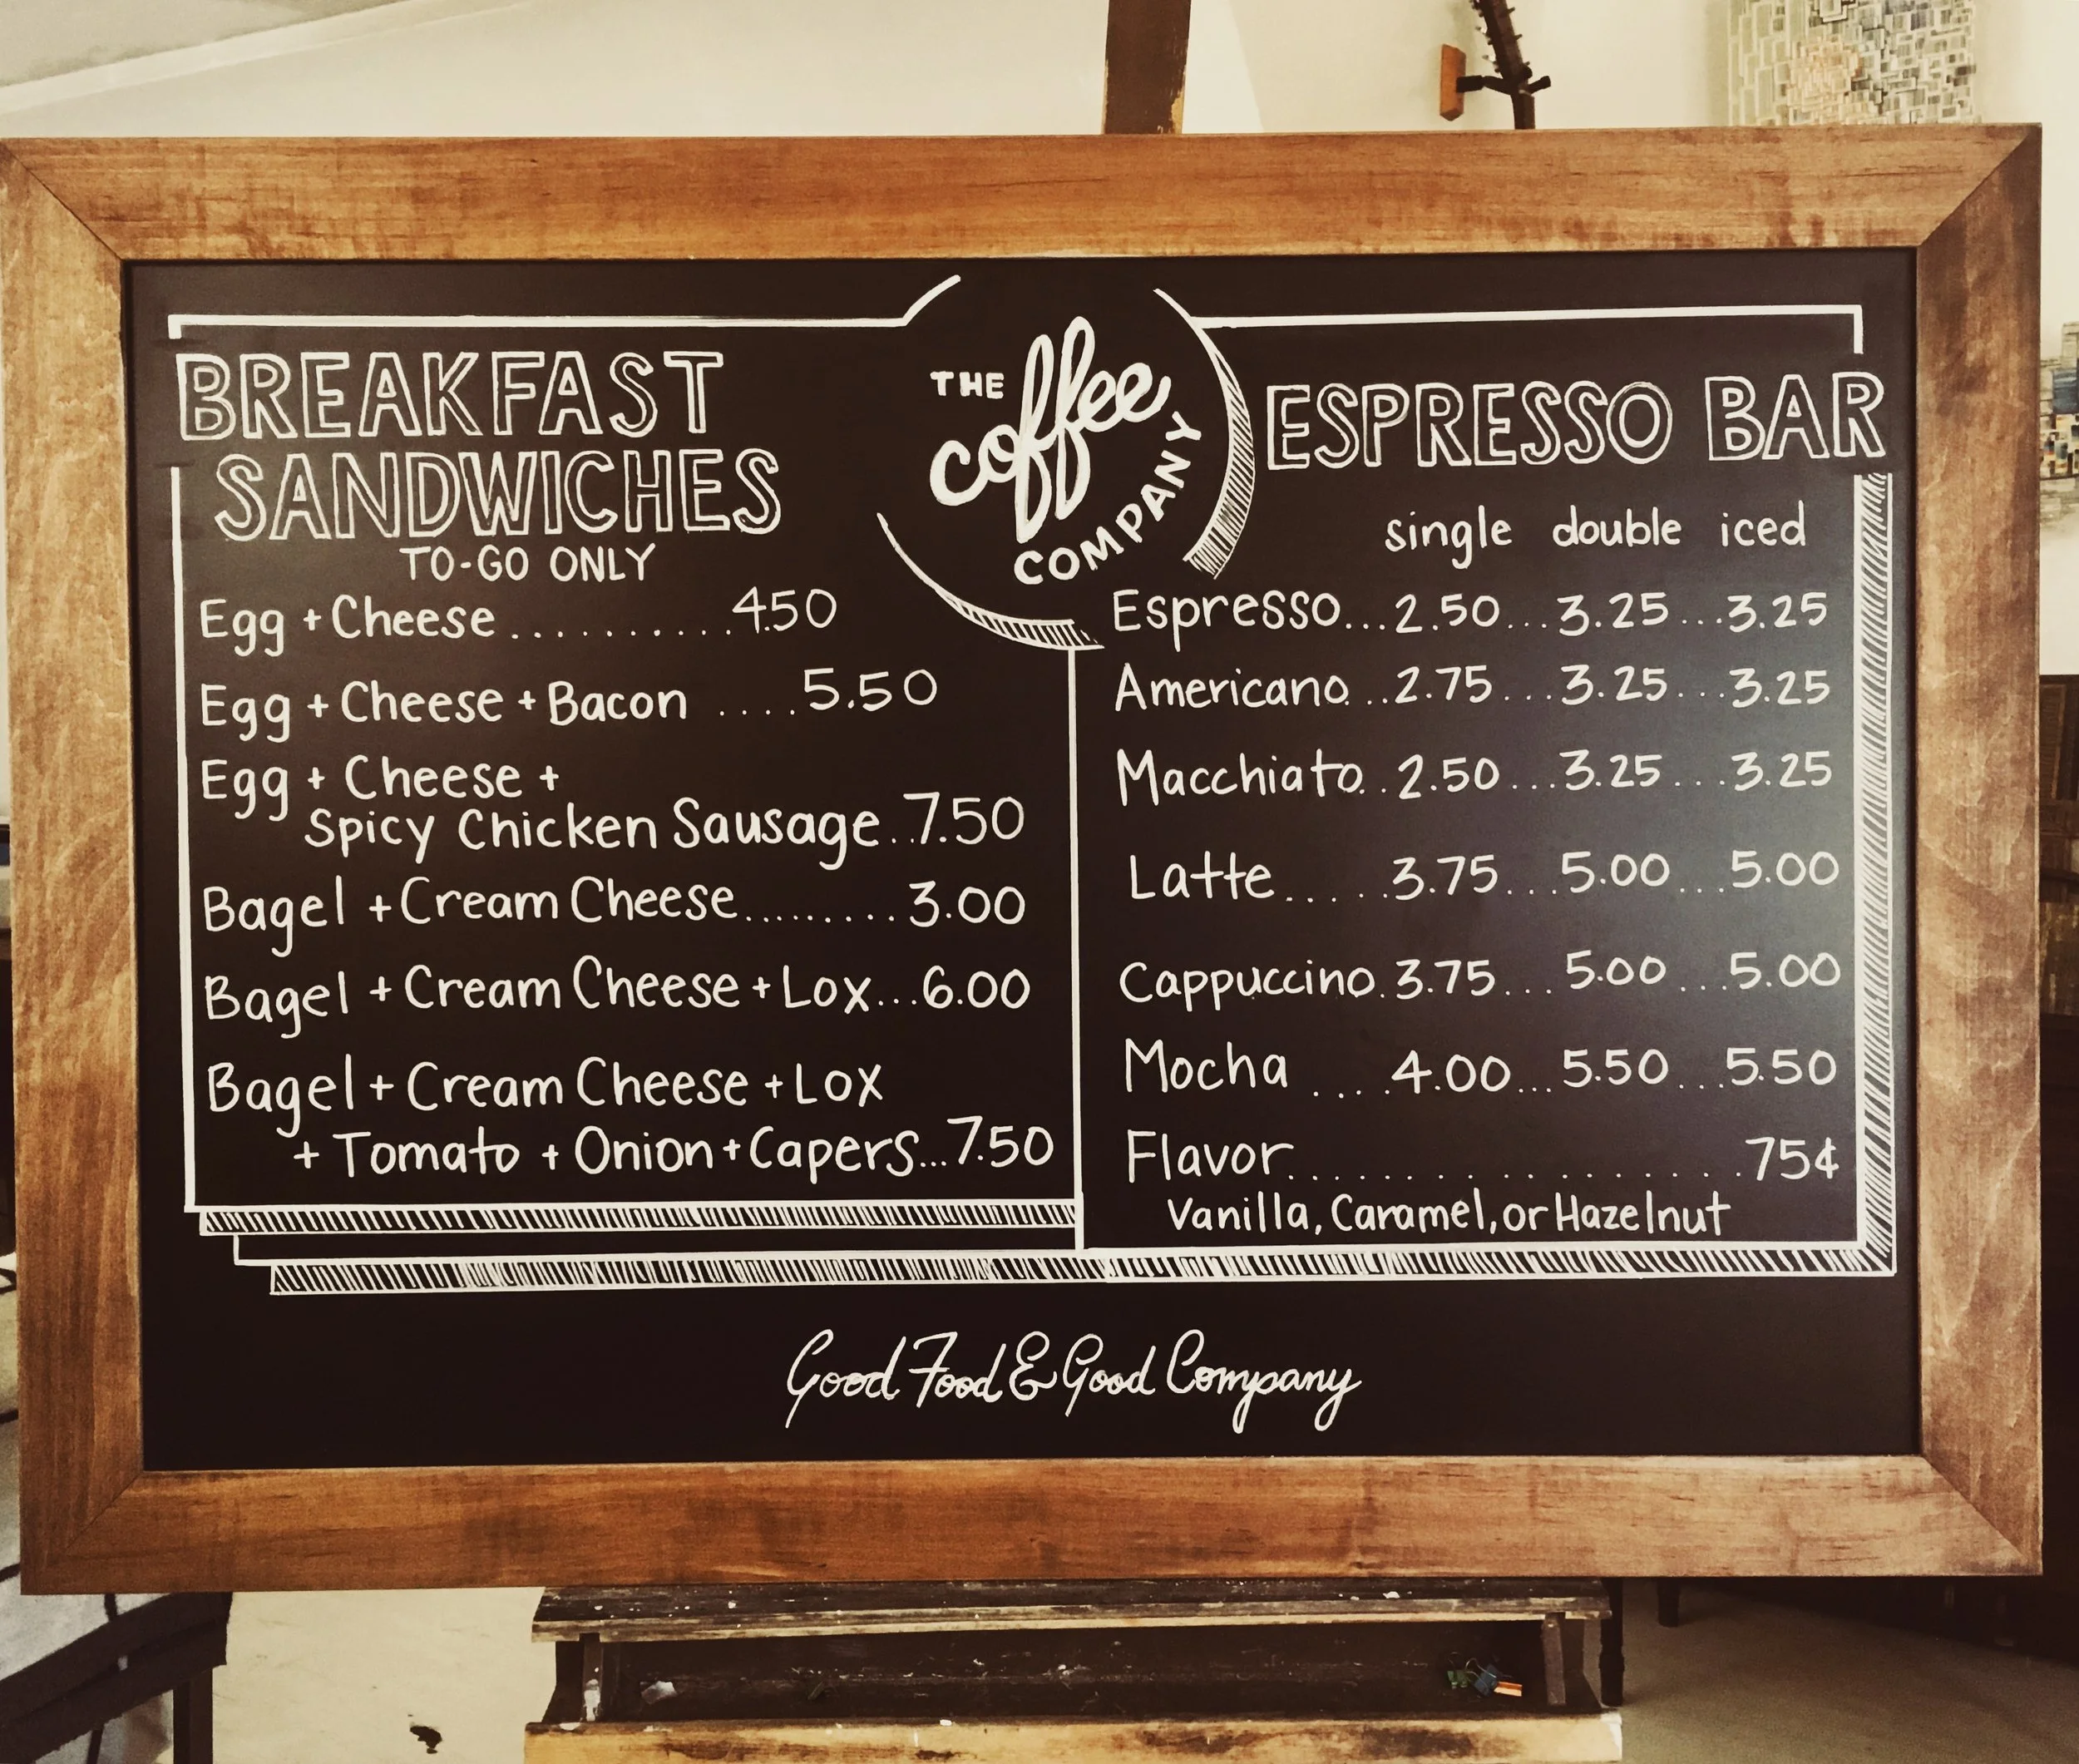 BREAKFAST
SANDWICHES
TO-GO ONLY
Egg + Cheese..........4.50
Egg + Cheese + Bacon ....5.50
Egg + Cheese +
Spicy Chicken Sausage..7.50
Bagel + Cream Cheese.........3.00
Bagel + Cream Cheese + Lox...6.00
Bagel + Cream Cheese + Lox
+ Tomato + Onion + Capers...7.50
THE
coffee
COMPANY
ESPRESSO BAR
single double iced
Espresso...2.50...3.25...3.25
Americano...2.75...3.25...3.25
Macchiato..2.50...3.25...3.25
Latte.....3.75...5.00...5.00
Cappuccino.3.75...5.00...5.00
Mocha ....4.00...5.50...5.50
Flavor.................75¢
Vanilla, Caramel, or Hazelnut
Good Food & Good Company